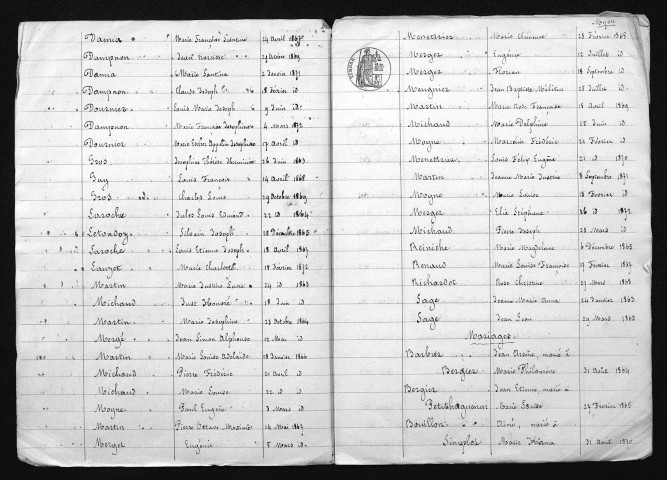 Damia Marie Françoise Léontine 24 Avril 1867
Dampnon Juset Narcisse 24 1869
Damia Marie Santina 2 Janvier 1871
Dampnon Claude Joseph 18 Février id
Dournier Louis Marie Joseph 9 Juin id
Dampnon Marie Françoise Joséphine 4 Mars 1872
Dournier Marie Joséphine 17 Avril id
Gros Joséphine Thérèse 26 Juin 1863
Guy Louis François 14 Avril 1868
Gros Charles Louis 29 Octobre 1869
Laroche Jules Louis Edmond 22 id 1864
Letondoz Silvain Joseph 28 Décembre 1865
Laroche Louis Etienne Joseph 18 Avril 1867
Lanzet Marie Charlotte 18 Février 1872
Martin Marie Justine Lucie 24 id 1863
Michaud Just Honoré 18 Juin id
Martin Marie Joséphine 23 Octobre 1864
Mergé Jean Simon Alphonse 10 Mai id
Martin Marie Louise Adelaïde 18 Janvier 1866
Michaud Pierre Frédéric 21 Avril id
Michaud Marie Louise 22 id id
Moyne Paul Eugène 3 Mars id
Martin Pierre Octave Maximin 14 Mai 1867
Merget Eugénie 5 Mars id
Moyon
Menettrier Marie Clémence 28 Février 1868
Merget Eugénie 12 Juillet id
Merget Florian 18 Septembre id
Mougnier Jean Baptiste 28 Juillet id
Martin Marie Rose Françoise 18 Avril 1869
Michaud Marie Delphine 25 Juin id
Moyne Marcelin Frédéric 21 Février id
Menettrier Louis Félix Eugène 21 id 1870
Martin Jeanne Marie Justine 8 Septembre 1871
Moyne Marie Louise 18 Février id
Merget Elie Stéphane 26 id 1872
Michaud Pierre Joseph 25 Mars id
Reiniche Marie Magdeleine 6 Décembre 1865
Renaud Marie Louise Françoise 17 Février 1867
Richardot Rose Christine 27 Mars 1868
Sage Jeanne Marie Anna 24 Janvier 1863
Sage Jean Léon 29 Mars 1865
Mariages.
Barbier Jean Arsène, marié à
Bergier Marie Philomène 31 Août 1864
Bergier Jean Etienne, marié à
Petithuguenin Marie Louise 27 Février 1868
Bouillon Aimé, marié à
Singplot Marie Norma 31 Août 1870